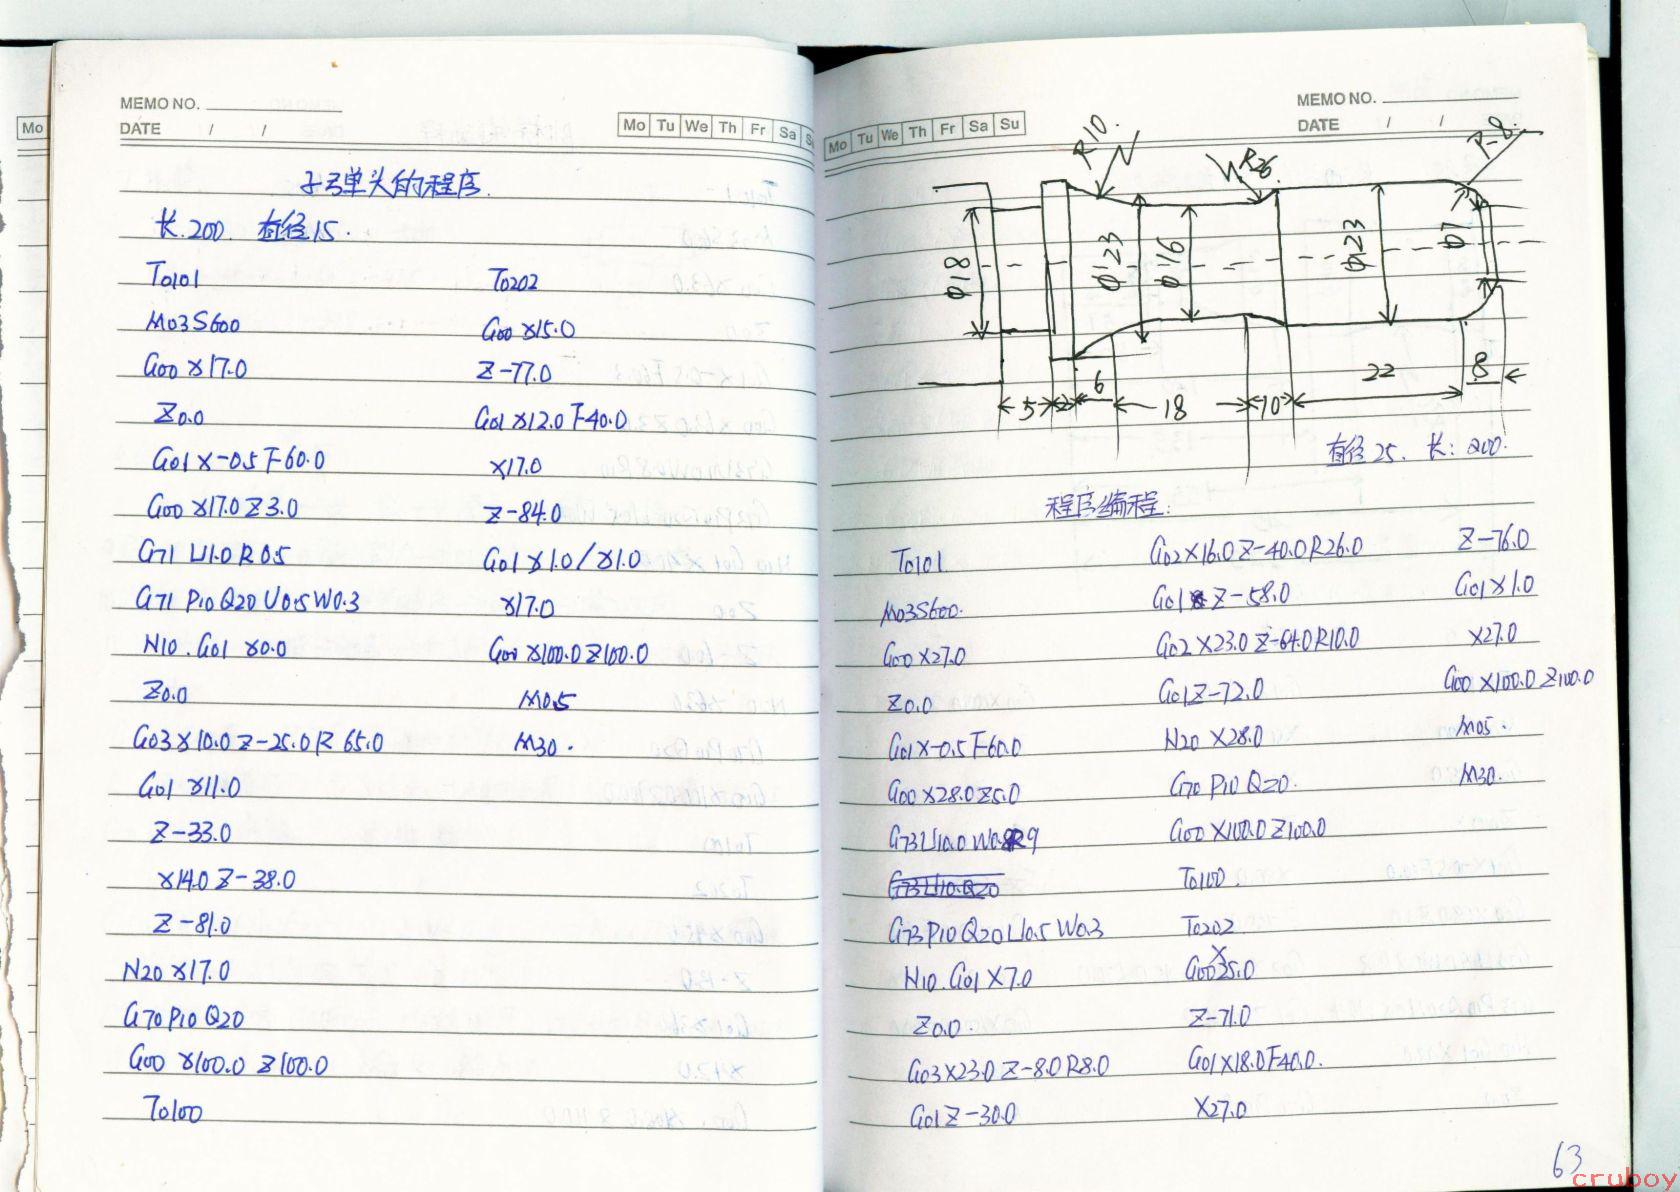 MEMO NO.
DATE / /
Mo Tu We Th Fr Sa
子弹头的程序.
长.200. 直径15.
T0101
M03S600
G00 X17.0
Z0.0
G01 X-0.5 F60.0
G00 X17.0 Z3.0
G71 U1.0 R0.5
G71 P10 Q20 U0.5 W0.3
N10. G01 X0.0
Z0.0
G03 X10.0 Z-25.0 R 65.0
G01 X11.0
Z-33.0
X14.0 Z-38.0
Z-81.0
N20 X17.0
G70 P10 Q20
G00 X100.0 Z100.0
T0100
T0202
G00 X15.0
Z-77.0
G01 X12.0 F40.0
X17.0
Z-84.0
G01 X1.0/X1.0
X17.0
G00 X100.0 Z100.0
M0.5
M30.
Mo
MEMO NO.
DATE / /
Mo Tu We Th Fr Sa Su
R10.
R26.
R-8.
Φ18
Φ23
Φ16
Φ23
Φ7
5
2
6
18
10
22
8
直径25. 长: 200.
程序编程:
T0101
M03S600.
G00 X27.0
Z0.0
G01 X-0.5 F60.0
G00 X28.0 Z5.0
G73 U10.0 W0.8 R9
G73 U10.Q20
G73 P10 Q20 U0.5 W0.3
N10. G01 X7.0
Z0.0
G03 X23.0 Z-8.0 R8.0
G01 Z-30.0
G02 X16.0 Z-40.0 R26.0
G01 Z-58.0
G02 X23.0 Z-64.0 R10.0
G01 Z-72.0
N20 X28.0
G70 P10 Q20.
G00 X100.0 Z100.0
T0100.
T0202
G00 X25.0
Z-71.0
G01 X18.0 F40.0.
X27.0
Z-76.0
G01 X1.0
X27.0
G00 X100.0 Z100.0
M05.
M30.
63
cruboy